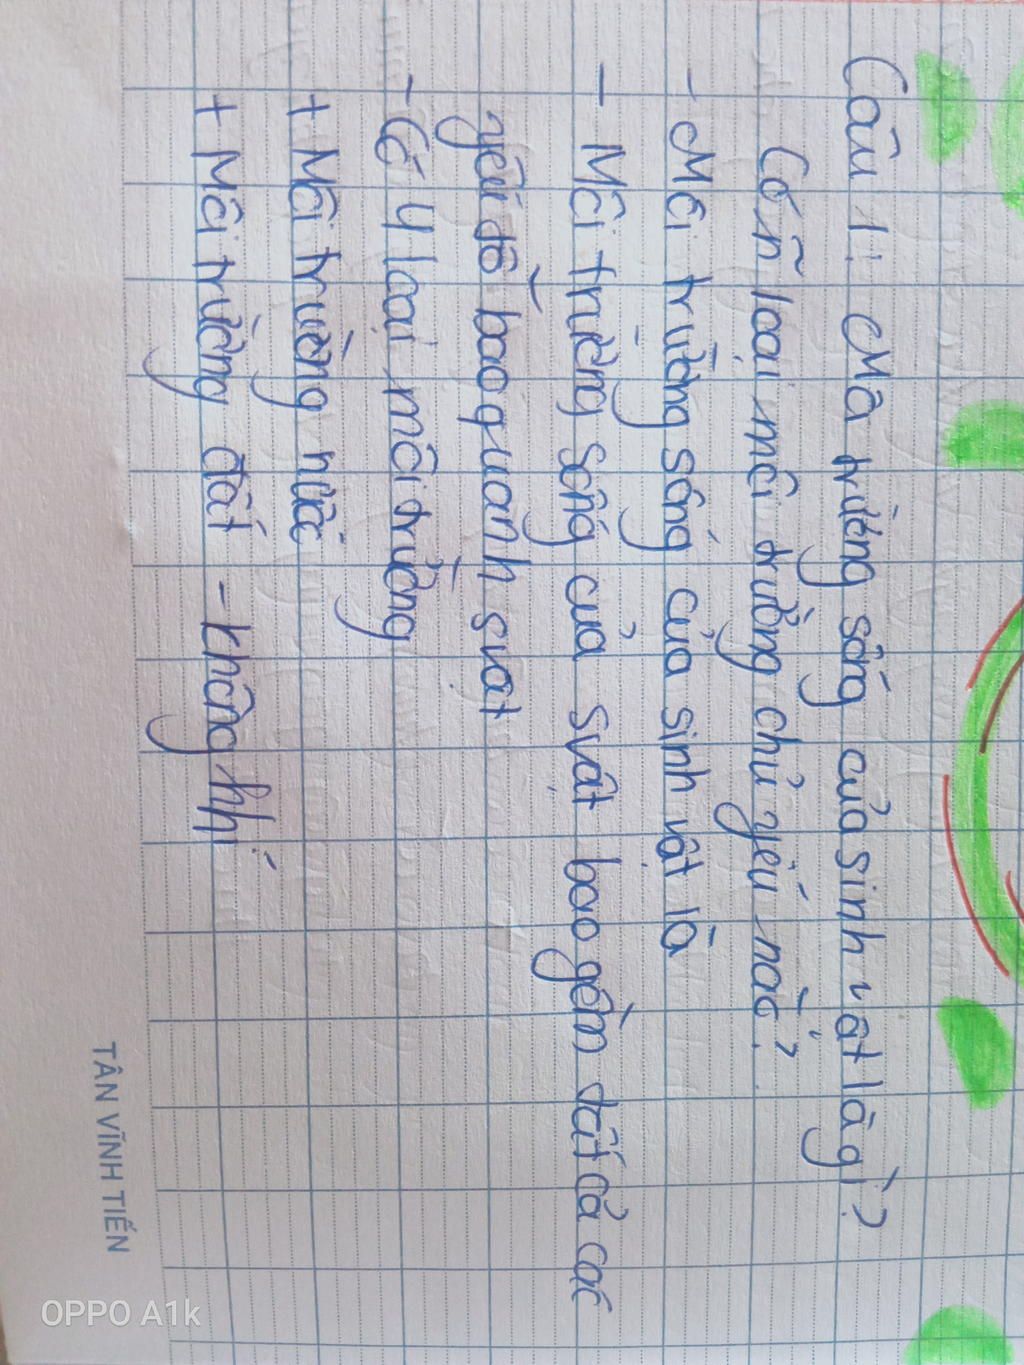 Câu 1: Mô trường sống của sinh vật là gì?
Có n̄ loại môi trường chủ yếu nào?
- Môi trường sống của sinh vật là
- Môi trường sống của svật bao gồm tất cả các
yếu tố bao quanh svật
- Có 4 loại môi trường
+ Môi trường nước
+ Môi trường đất - không khí
TÂN VĨNH TIẾN
OPPO A1k